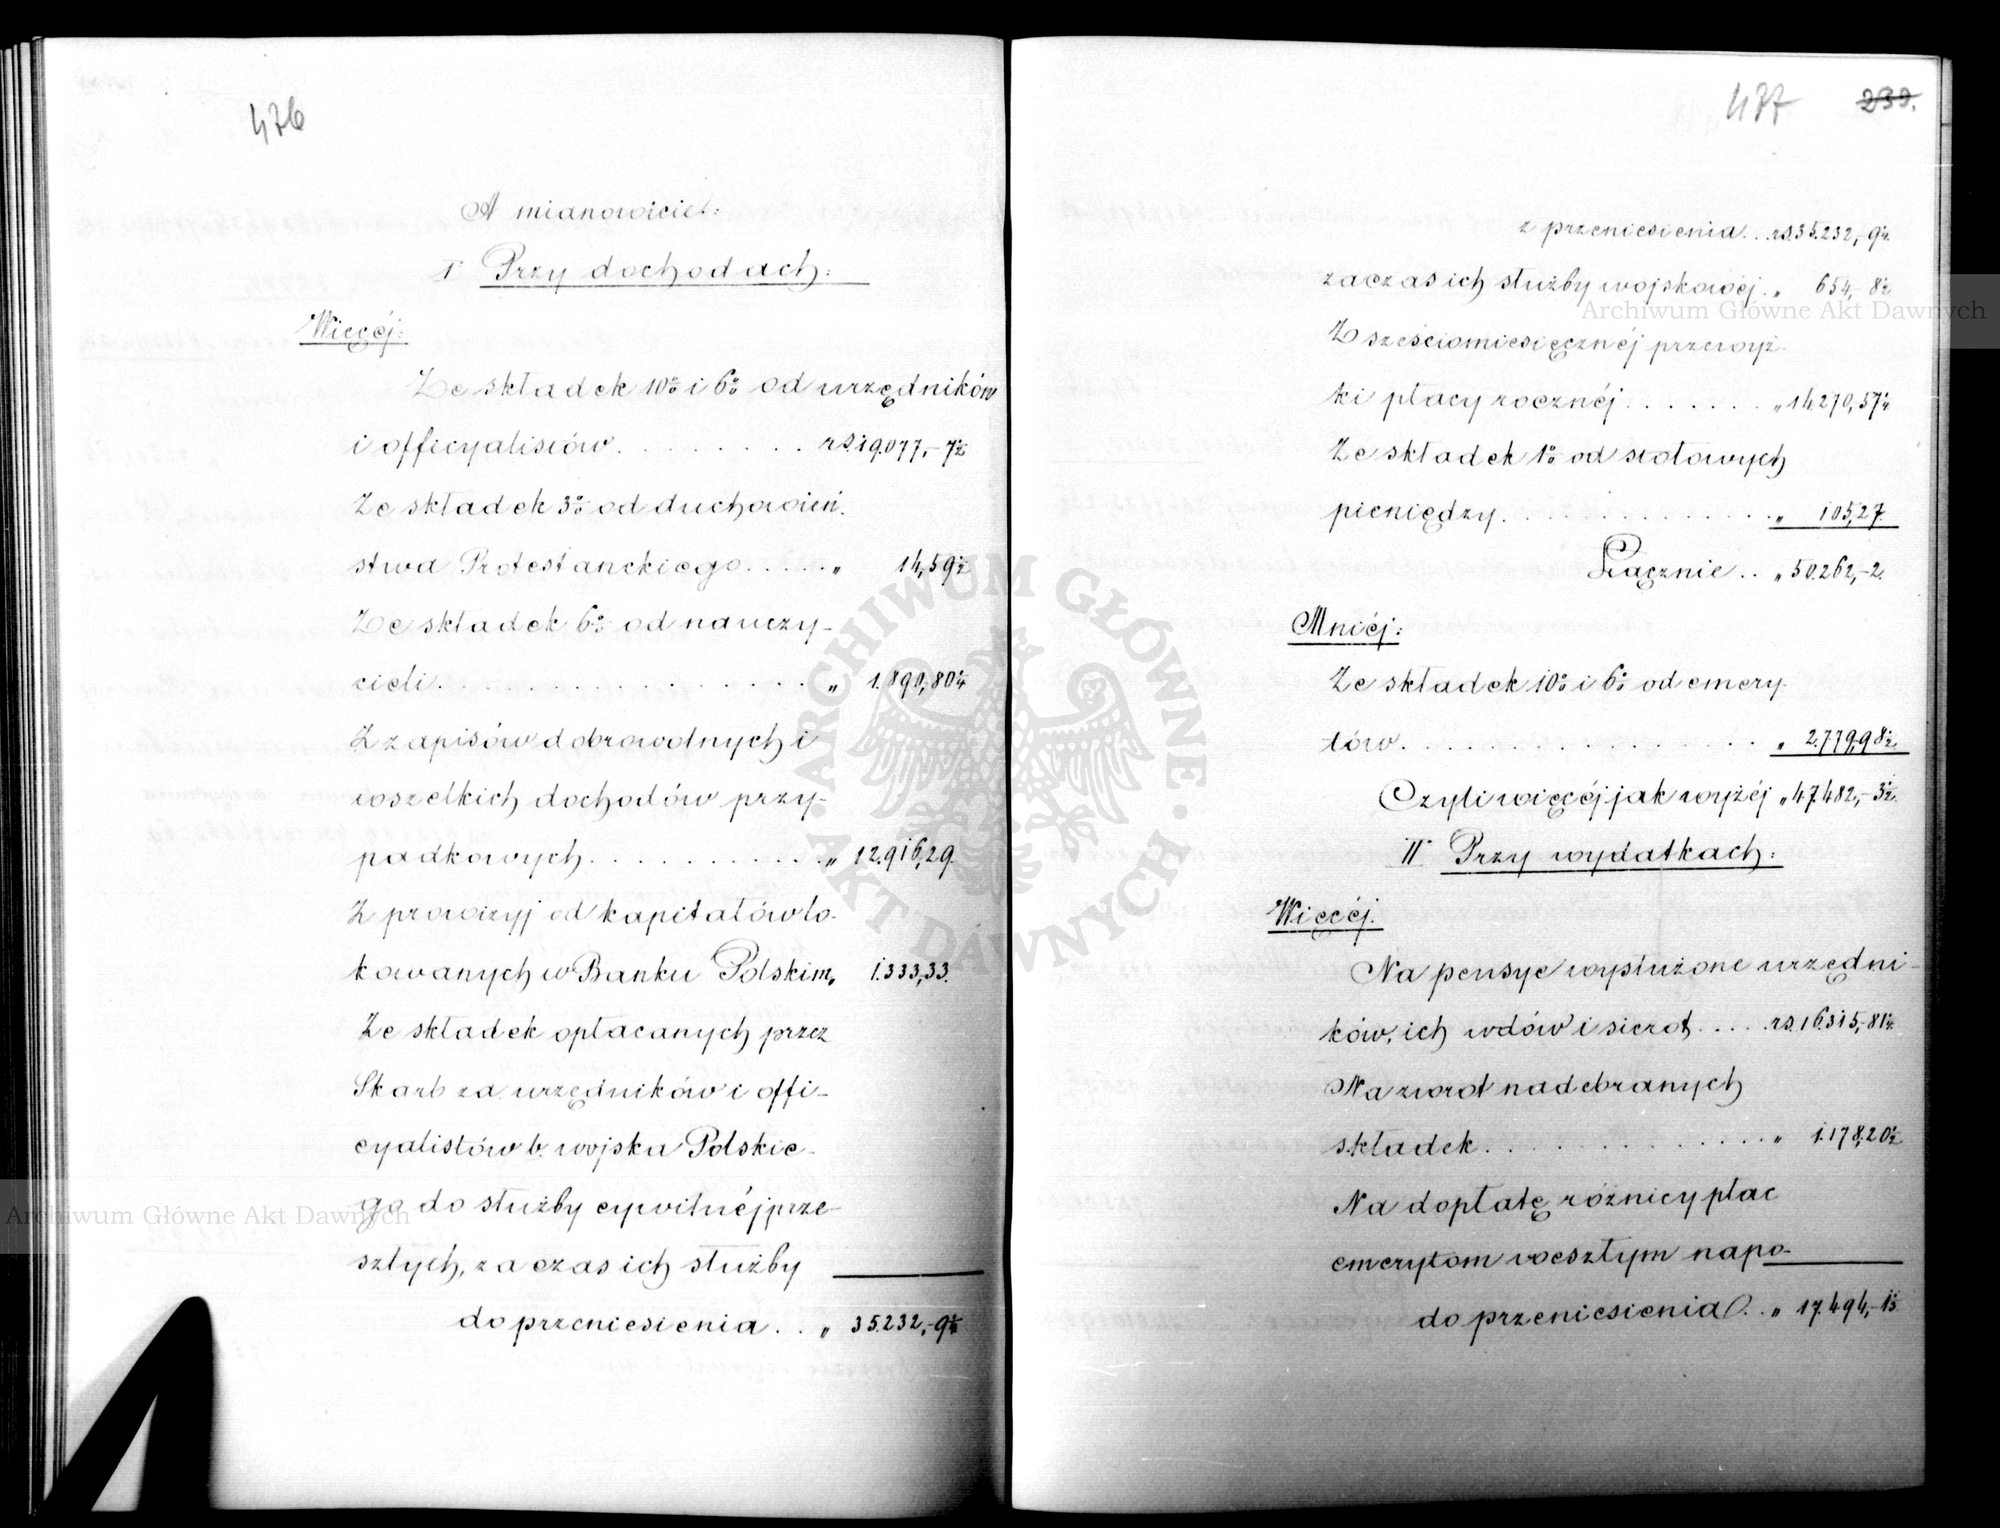 476
A mianowicie:
I° Przy dochodach:
Więcéj:
Ze składek 10% i 6% od urzędników
i officyalistów . . . . . . . . rs. 19.077,-7½
Ze składek 3% od duchowień-
stwa Protestanckiego . . . . . „ 14,59½
Ze składek 6% od nauczy-
cieli . . . . . . . . . . . . . . . „ 1.890,80¼
Z zapisów dobrowolnych i
wszelkich dochodów przy-
padkowych . . . . . . . . . . „ 12.916,29.
Z prowizyj od kapitałów lo-
kowanych w Banku Polskim „ 1.333,33.
Ze składek opłacanych przez
Skarb za urzędników i offi-
cyalistów b. wojska Polskie-
go do służby cywilnéj prze-
szłych, za czas ich służby
do przeniesienia . . „ 35.232,-9¼
477 239.
z przeniesienia . . rs. 35.232,-9¼
za czas ich służby wojskowéj . „ 654,-8½
Z sześciomiesięcznéj przewyż-
ki płacy rocznéj . . . . . . . „ 14.270,57¼
Ze składek 1% od stołowych
pieniędzy . . . . . . . . . . . . . „ 105,27.
Łącznie . . „ 50.262,-2.
Mniéj:
Ze składek 10% i 6% od emery-
tów . . . . . . . . . . . . . . . . „ 2.779,98½
Czyli więcéj jak wyżéj „ 47.482,-3½.
II° Przy wydatkach:
Więcéj.
Na pensye wysłużone urzędni-
ków, ich wdów i sierot . . . . rs. 16.315,-81¼
Na zwrot nadebranych
składek . . . . . . . . . . . . . „ 1.178,20½
Na dopłatę różnicy płac
emerytom weszłym napo-
do przeniesienia . . „ 17.494,-1¾
Archiwum Główne Akt Dawnych
Archiwum Główne Akt Dawnych
ARCHIWUM GŁÓWNE · AKT DAWNYCH ·